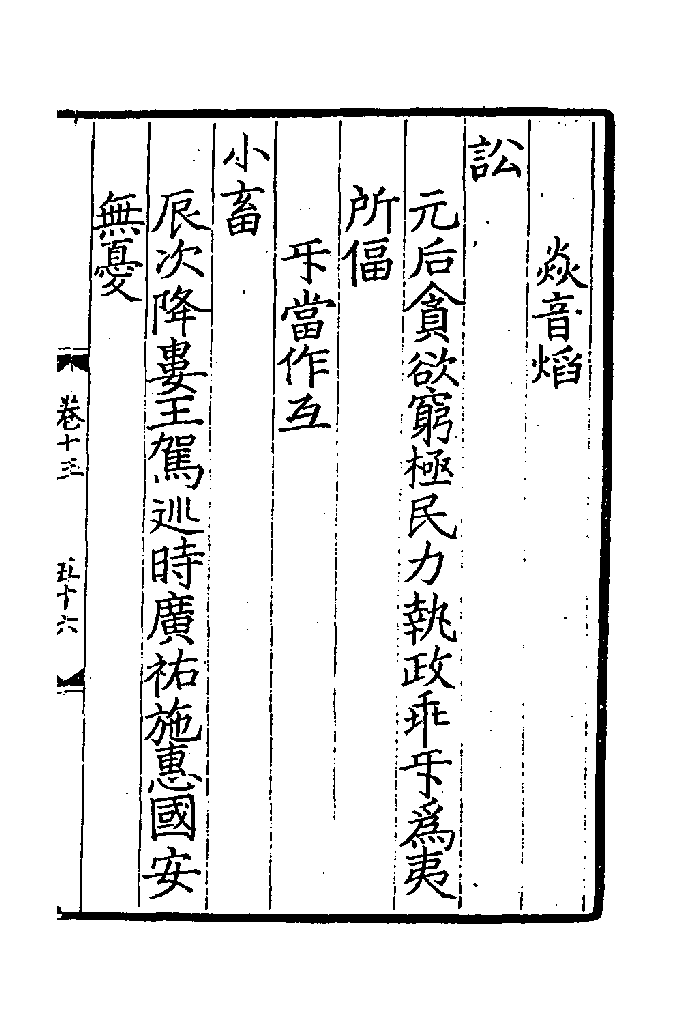 焱音熖
訟
元后貪欲窮極民力執政乖㸦爲夷
所偪
㸦當作互
小畜
辰次降婁王駕廵時廣祐施惠國安
無憂
卷十三
五十六